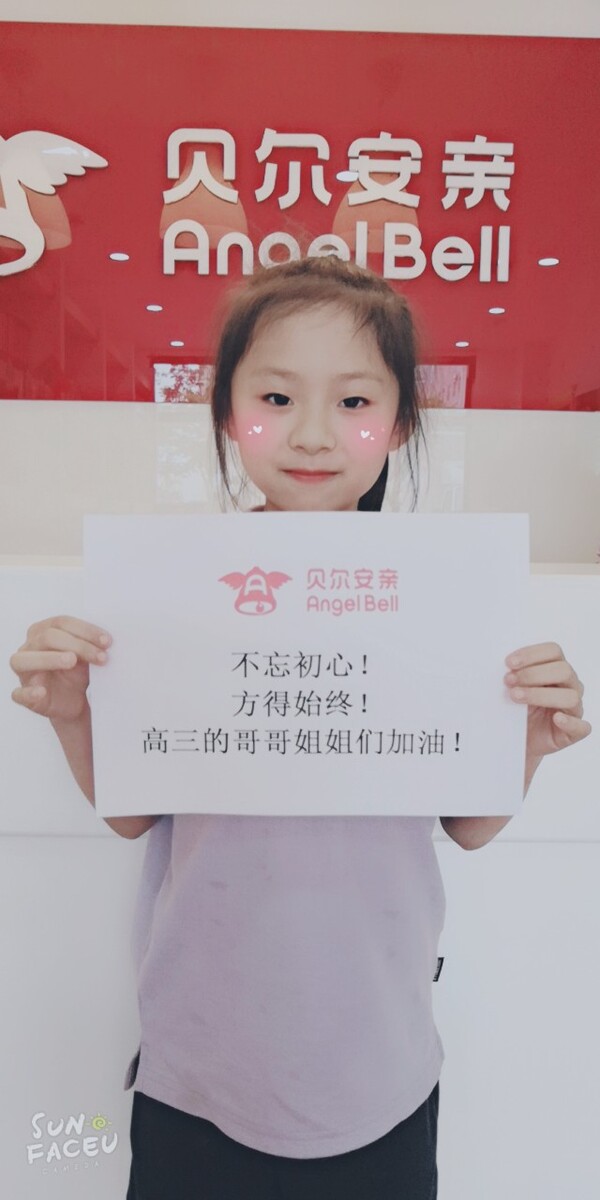 贝尔安亲
Angel Bell
贝尔安亲
Angel Bell
不忘初心！
方得始终！
高三的哥哥姐姐们加油！
SUN
FACEU
CAMERA